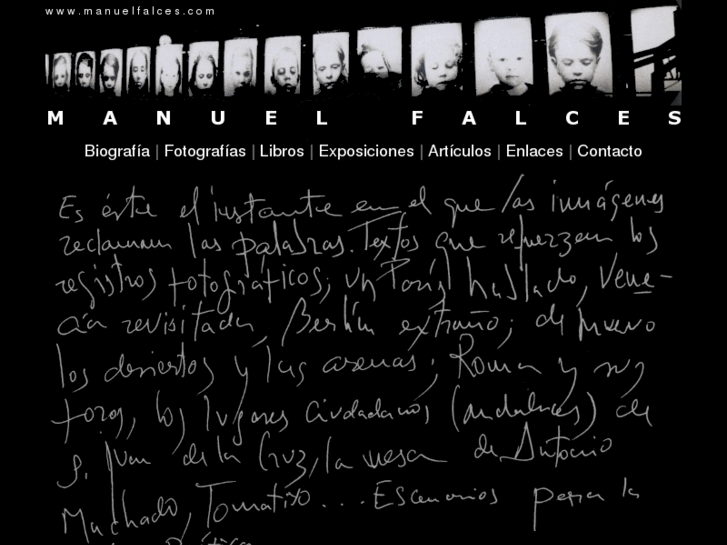 www.manuelfalces.com
MANUEL FALCES
Biografía | Fotografías | Libros | Exposiciones | Artículos | Enlaces | Contacto
Es éste el instante en el que las imágenes
reclaman las palabras. Textos que refuerzan los
registros fotográficos; un París hallado, Vene-
cia revisitada, Berlín extraño; de nuevo
los desiertos y las arenas; Roma y sus
foros, los lugares ciudadanos (andaluces) de
S. Juan de la Cruz, la mesa de Antonio
Machado, Tomatito... Escenarios para la